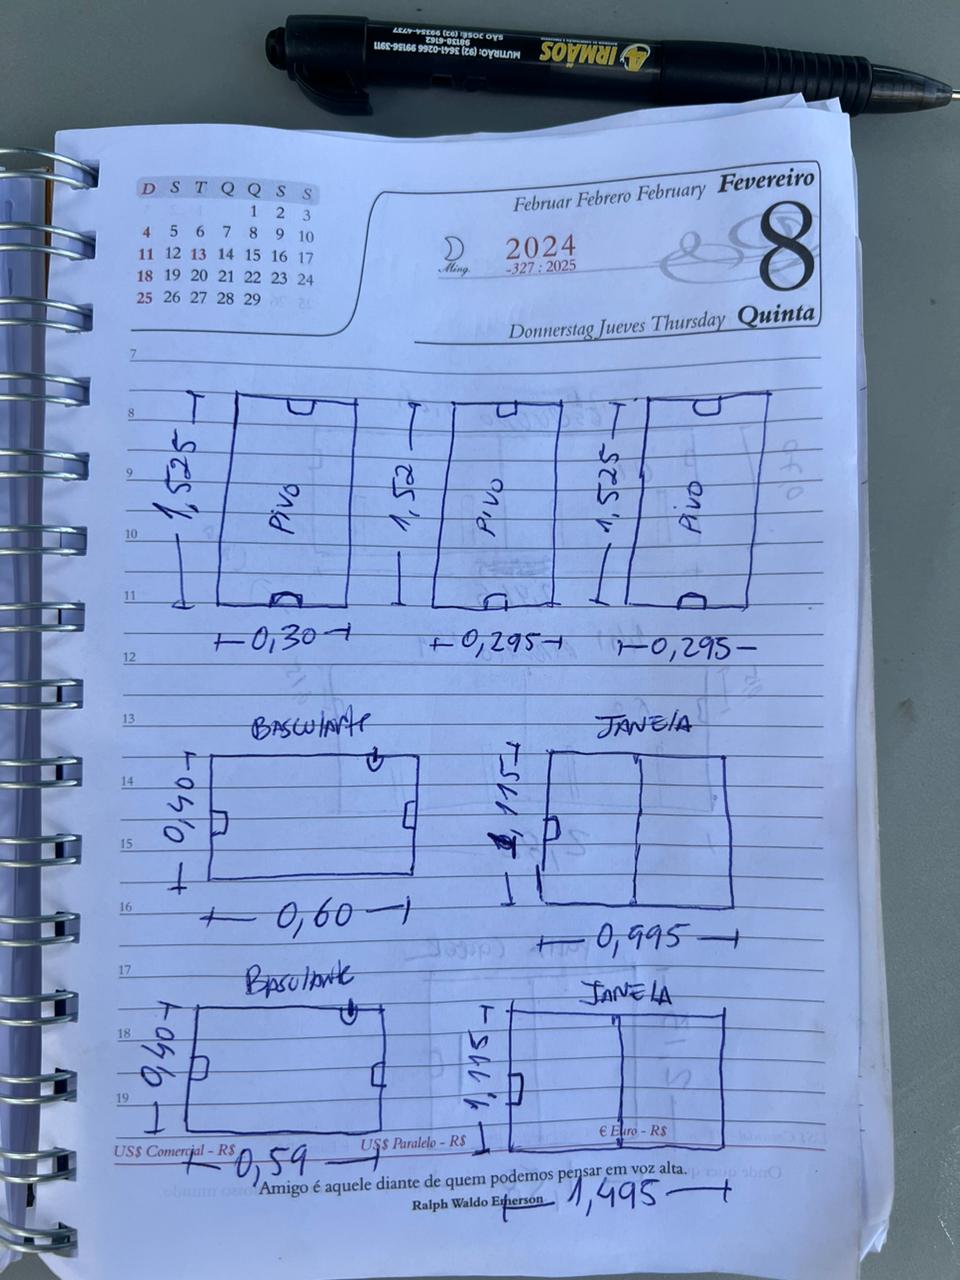 4 IRMÃOS
MUTIRÃO: (92) 3641-0266 99156-3911
98138-6162
SÃO JOSÉ: (92) 99354-4737
D S T Q Q S S
1 2 3
4 5 6 7 8 9 10
11 12 13 14 15 16 17
18 19 20 21 22 23 24
25 26 27 28 29
Februar Febrero February Fevereiro
Ming.
2024
-327 : 2025
8
Donnerstag Jueves Thursday Quinta
7
8
9
10
11
12
13
14
15
16
17
18
19
1,525 Pivo
1,52 Pivo
1,525 Pivo
0,30
0,295
0,295
BASCULANTE
0,40
0,60
JANELA
1,115
0,995
BASCULANTE
0,40
0,59
JANELA
1,115
1,495
US$ Comercial - R$ US$ Paralelo - R$ € Euro - R$
Amigo é aquele diante de quem podemos pensar em voz alta.
Ralph Waldo Emerson